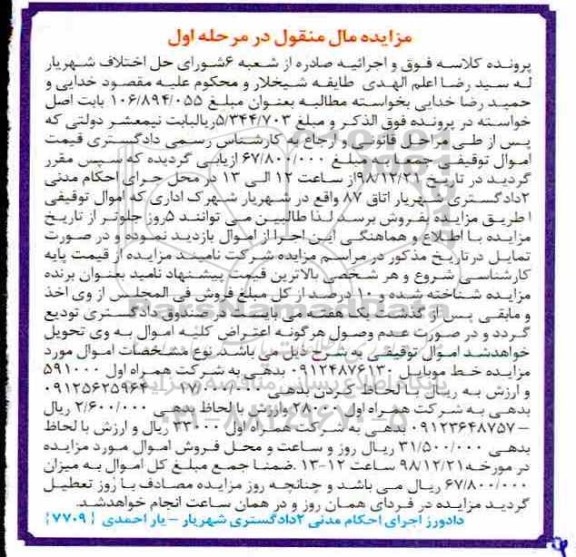 مزایده مال منقول در مرحله اول
پرونده کلاسه فوق و اجرائیه صادره از شعبه ۶شورای حل اختلاف شهریار
له سید رضا اعلم الهدی طایفه شیخلار و محکوم علیه مقصود خدایی و
حمید رضا خدایی بخواسته مطالبه بعنوان مبلغ ۱۰۶/۸۹۴/۰۵۵ بابت اصل
خواسته در پرونده فوق الذکر و مبلغ ۵/۳۴۴/۷۰۳ریالبابت نیمعشر دولتی که
پس از طی مراحل قانونی و ارجاع به کارشناس رسمی دادگستری قیمت
اموال توقیفی جمعا به مبلغ ۶۷/۸۰۰/۰۰۰ ارزیابی گردیده که سپس مقرر
گردید در تاریخ ۹۸/۱۲/۲۱از ساعت ۱۲ الی ۱۳ در محل جرای احکام مدنی
۲دادگستری شهریار اتاق ۸۷ واقع در شهریار شهرک اداری که اموال توقیفی
ا طریق مزایده بفروش برسد لذا طالبین می توانند ۵روز جلوتر از تاریخ
مزایده با اطلاع و هماهنگی این اجرا از اموال بازدید نموده و در صورت
تمایل درتاریخ مذکور در مراسم مزایده شرکت نامیند مزایده از قیمت پایه
کارشناسی شروع و هر شخصی بالاترین قیمت پیشنهاد نامید بعنوان برنده
مزایده شناخته شده و ۱۰ درصد از کل مبلغ فروش فی المجلس از وی اخذ
و مابقی پس از گذشت یک هفته می بایست در صندوق دادگستری تودیع
گردد و در صورت عدم وصول هرگونه اعتراض کلیه اموال به وی تحویل
خواهدشد اموال توقیفی به شرح ذیل می باشد. نوع مشخصات اموال مورد
مزایده خط موبایل ۰۹۱۲۴۸۷۶۱۳۰ بدهی به شرکت همراه اول ۵۹۱۰۰۰
و ارزش به ریال با لحاظ کردن بدهی ۱۷/۶۰۰/۰۰۰ – ۰۹۱۲۵۶۲۵۹۶۴
بدهی به شرکت همراه اول ۲۸۰۰۰ وارزش بالحاظ بدهی ۲/۶۰۰/۰۰۰ ریال
– ۰۹۱۲۳۶۴۸۷۵۷ بدهی به شرکت همراه اول ۳۳۰۰۰ ریال و ارزش با لحاظ
بدهی ۳۱/۵۰۰/۰۰۰ ریال روز و ساعت و محل فروش اموال مورد مزایده
در مورخه ۹۸/۱۲/۲۱ ساعت ۱۲-۱۳ .ضمنا جمع مبلغ کل اموال به میزان
۶۷/۸۰۰/۰۰۰ ریال می باشد و چنانچه روز مزایده مصادف با روز تعطیل
گردید مزایده در فردای همان روز و در همان ساعت انجام خواهدشد.
دادورز اجرای احکام مدنی ۲دادگستری شهریار – یار احمدی {۷۷۰۹}